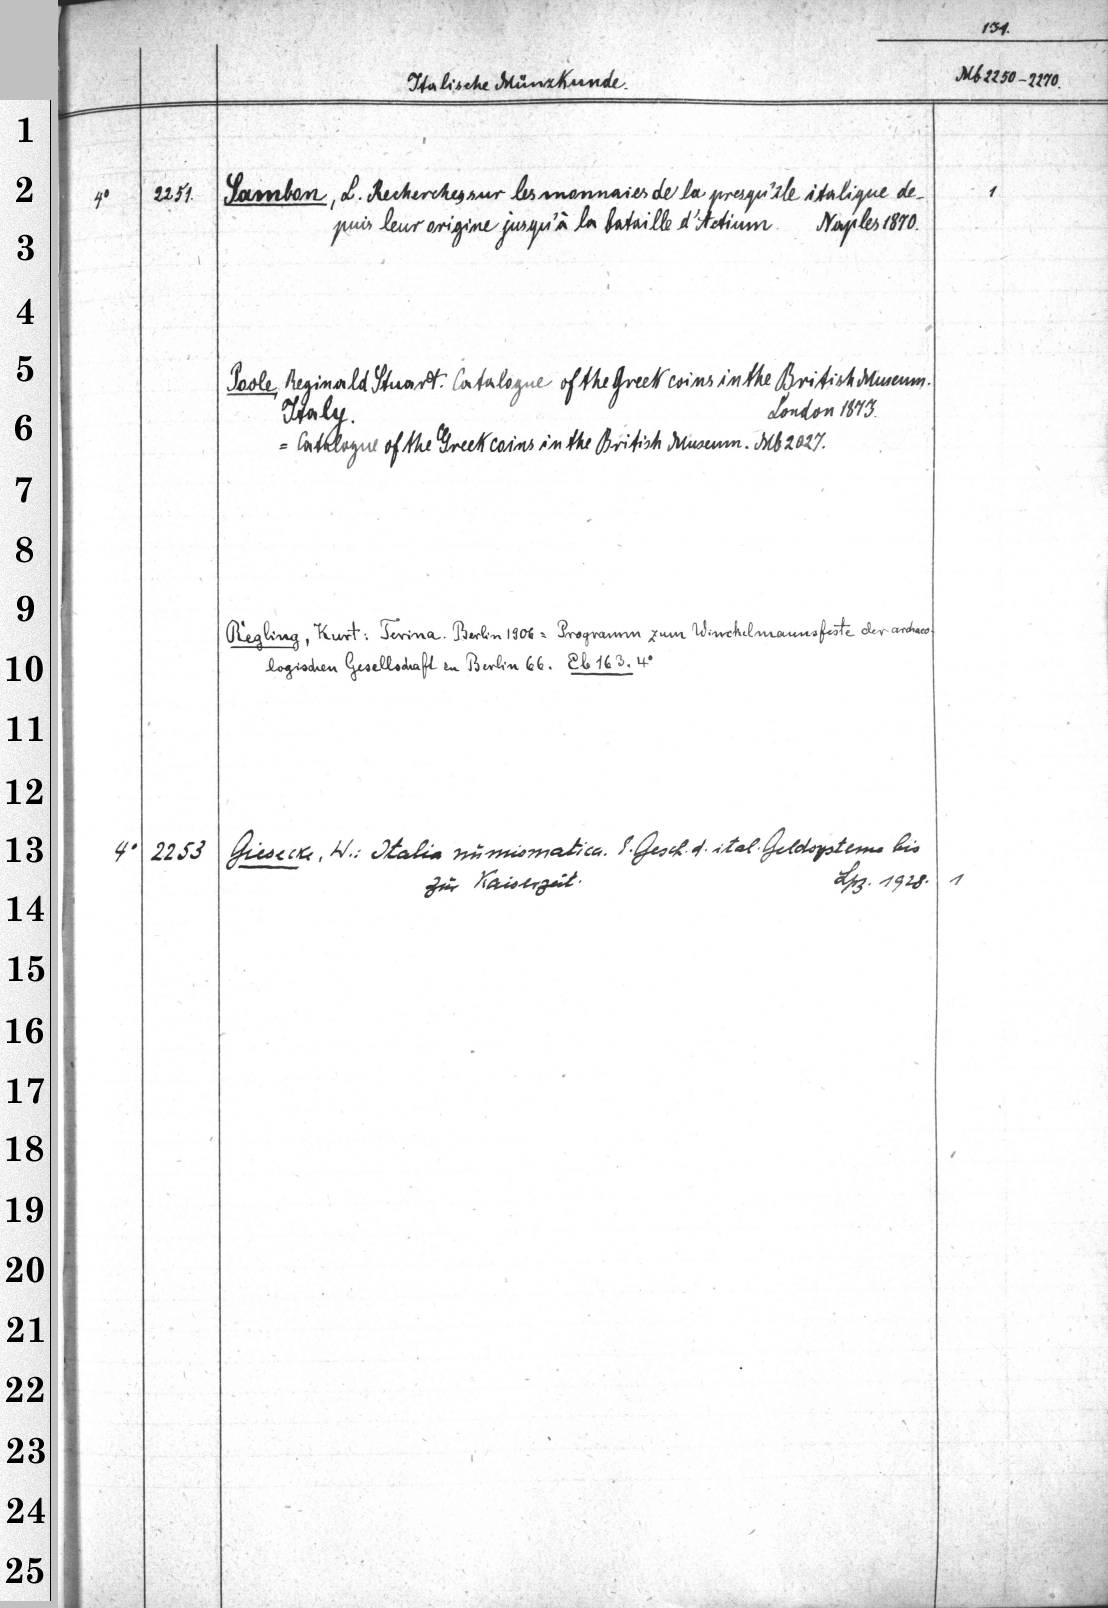 131.
Italische Münzkunde.
Mb 2250-2270.
1
2
3
4
5
6
7
8
9
10
11
12
13
14
15
16
17
18
19
20
21
22
23
24
25
4° 2251. Sambon, L. Recherches sur les monnaies de la presqu'île italique de- 1
puis leur origine jusqu'à la bataille d'Actium. Naples 1870.
Poole, Reginald Stuart. Catalogue of the Greek coins in the British Museum.
Italy. London 1873.
= Catalogue of the Greek coins in the British Museum. Mb 2027.
Regling, Kurt: Terina. Berlin 1906 = Programm zum Winckelmannsfeste der archaeo-
logischen Gesellschaft zu Berlin 66. Eb 163. 4°
4° 2253 Giesecke, W.: Italia numismatica. E. Gesch. d. ital. Geldsysteme bis
zur Kaiserzeit. Lpz. 1928. 1